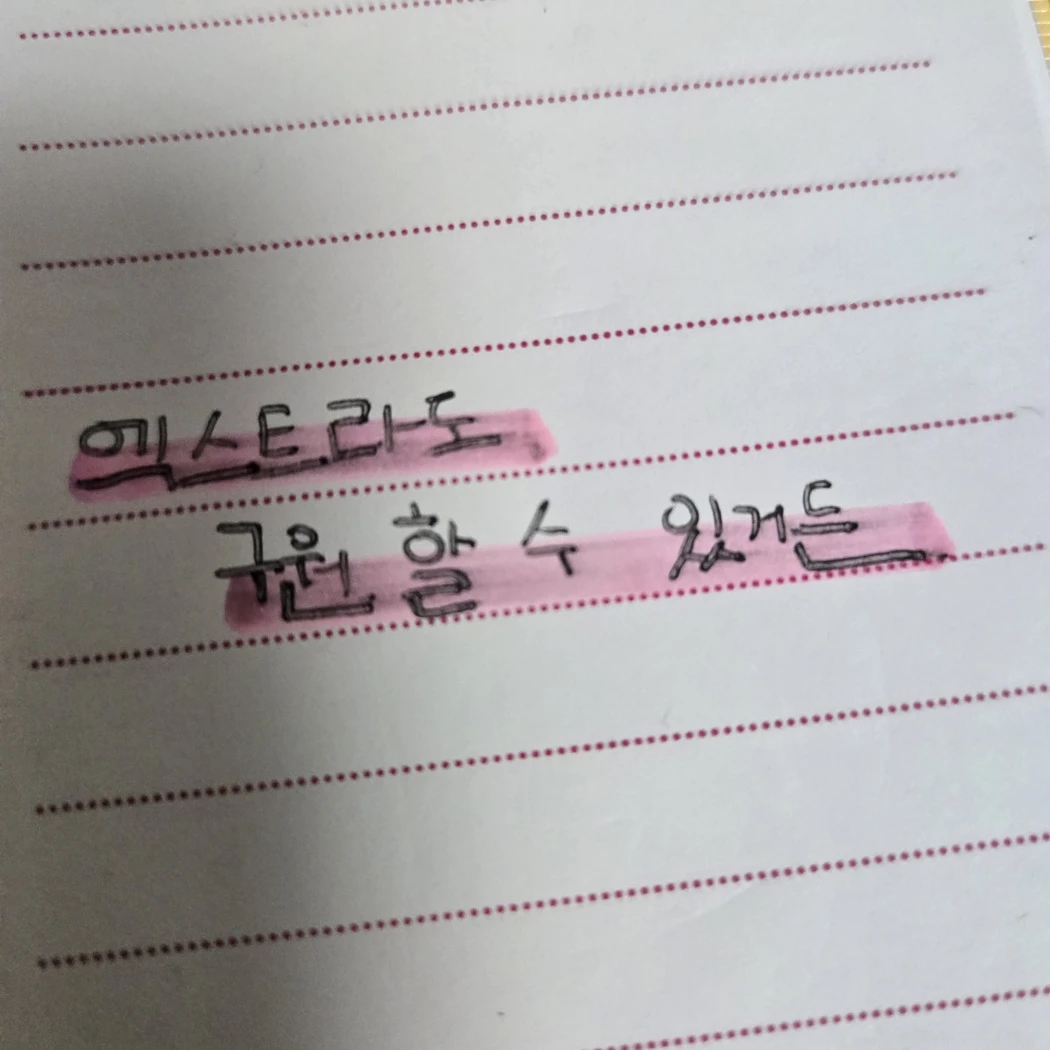 엑스트라도
구원 할 수 있거든